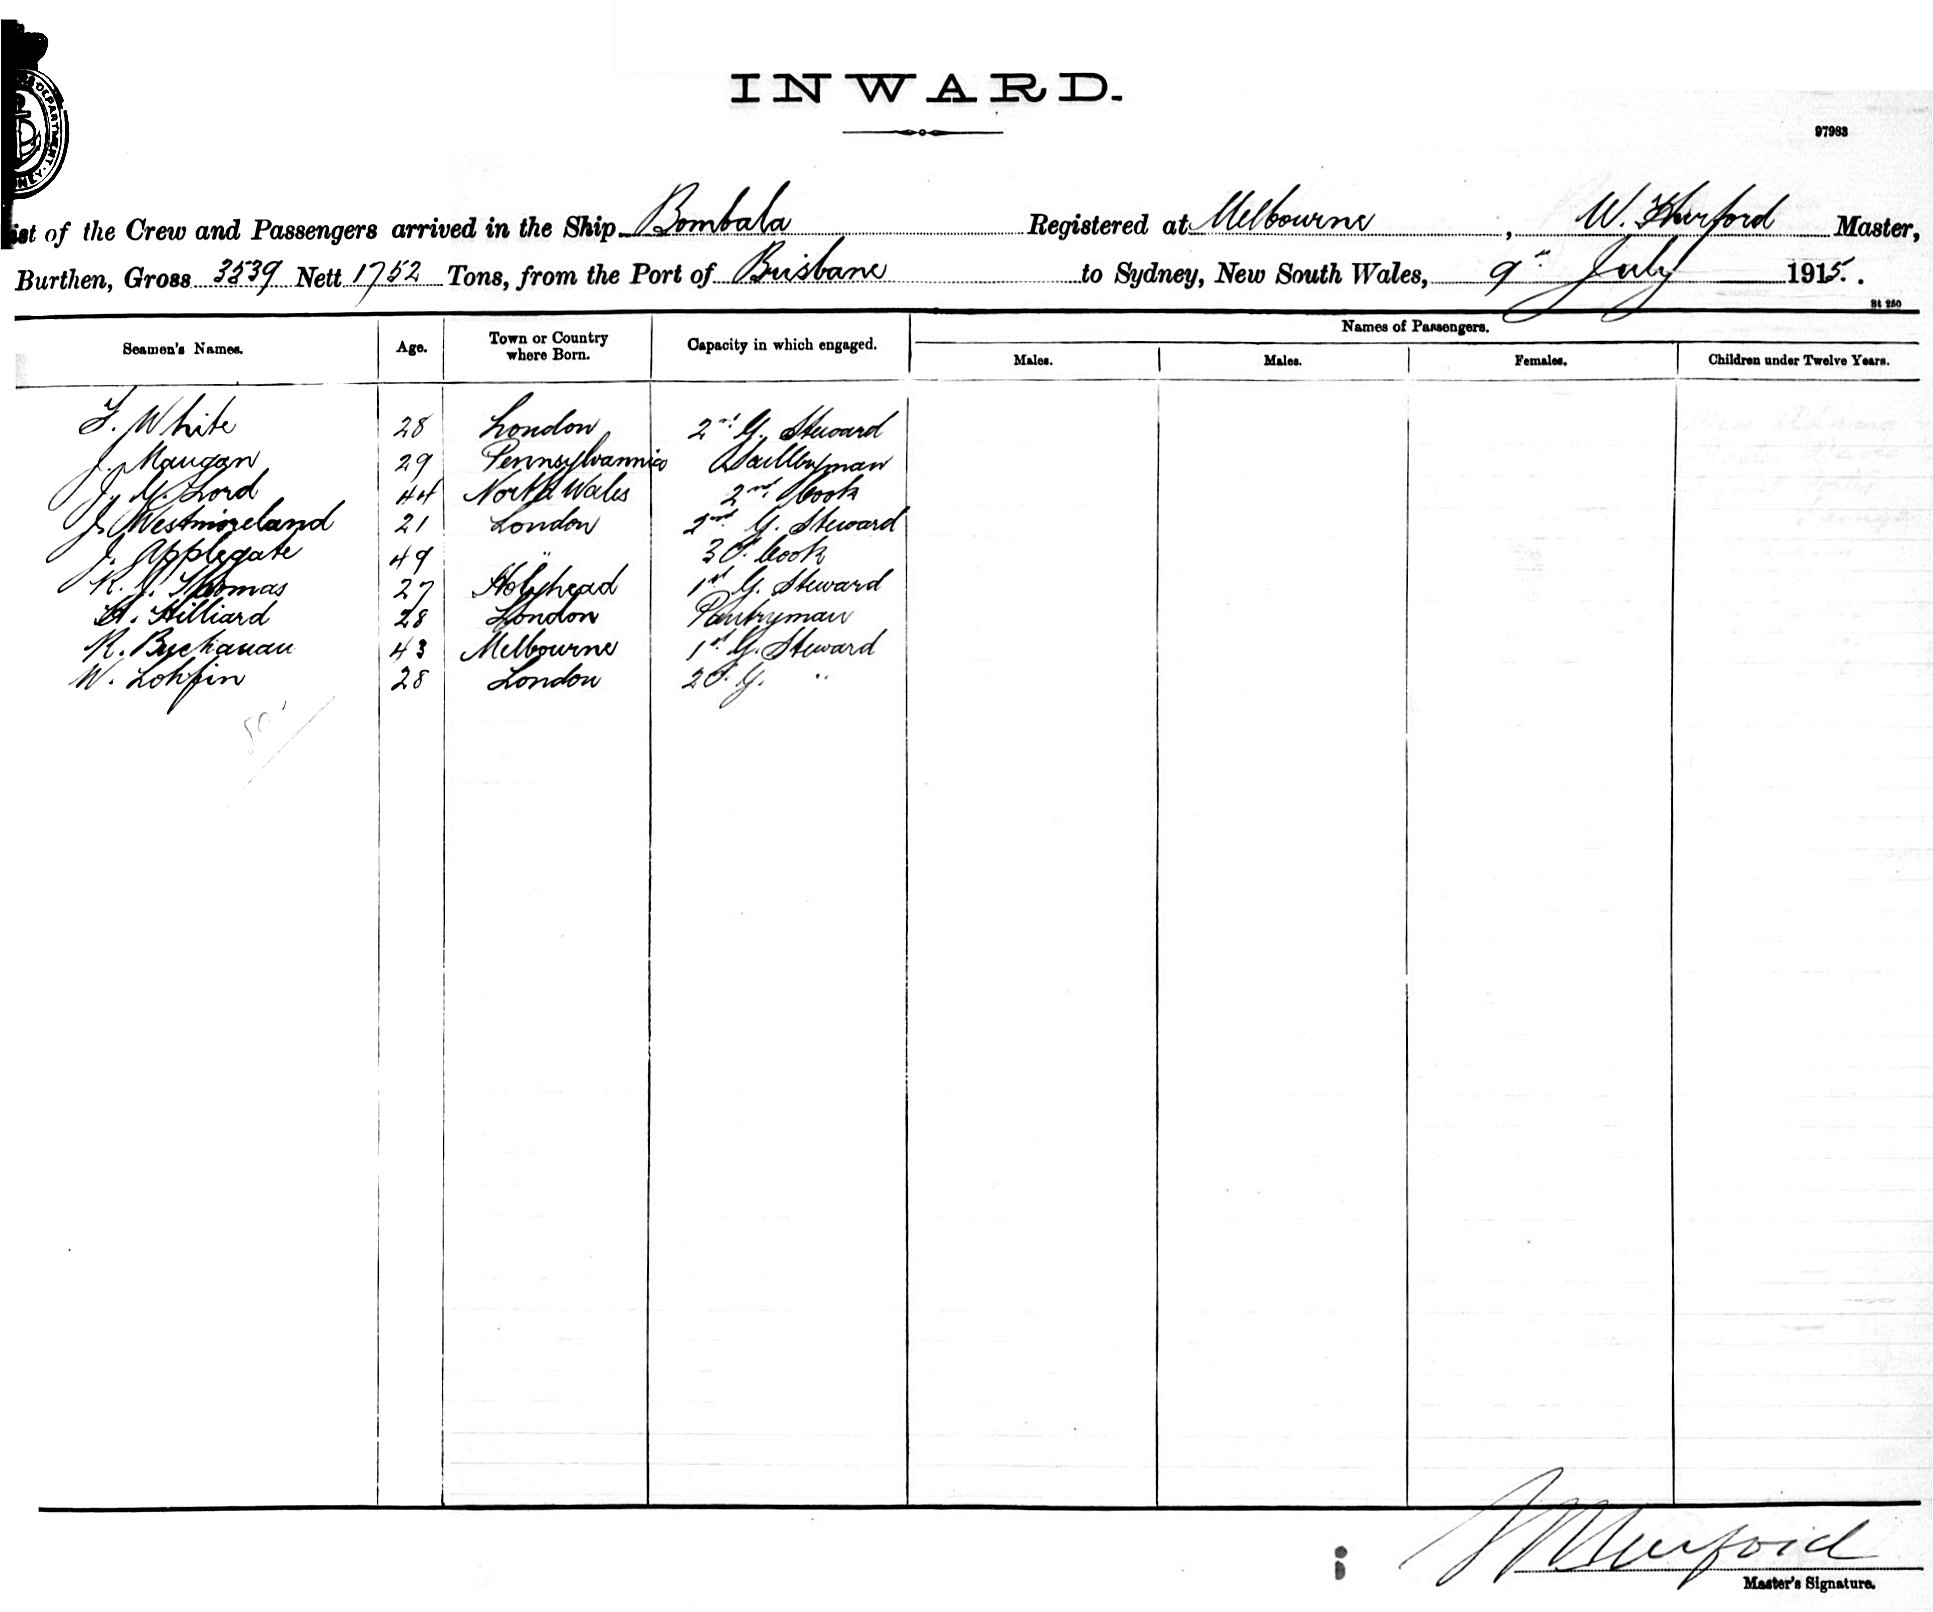 INWARD.
97983
List of the Crew and Passengers arrived in the Ship Bombala Registered at Melbourne, W. Thurford Master,
Burthen, Gross 3539 Nett 1752 Tons, from the Port of Brisbane to Sydney, New South Wales, 9th July 1915.
St 250
Seamen's Names. Age. Town or Country where Born. Capacity in which engaged. Names of Passengers.
Males. Males. Females. Children under Twelve Years.
F. White 28 London 2nd G. Steward
J. Maugan 29 Pennsylvannia Sculleryman
J. G. Lord 44 North Wales 2nd Cook
J. Westmoreland 21 London 2nd G. Steward
J. Applegate 49 " 3d. Cook
R. J. Thomas 27 Holyhead 1st G. Steward
A. Hilliard 28 London Pantryman
R. Buchanan 43 Melbourne 1st G. Steward
W. Lohfin 28 London 2d. G. "
Master's Signature.